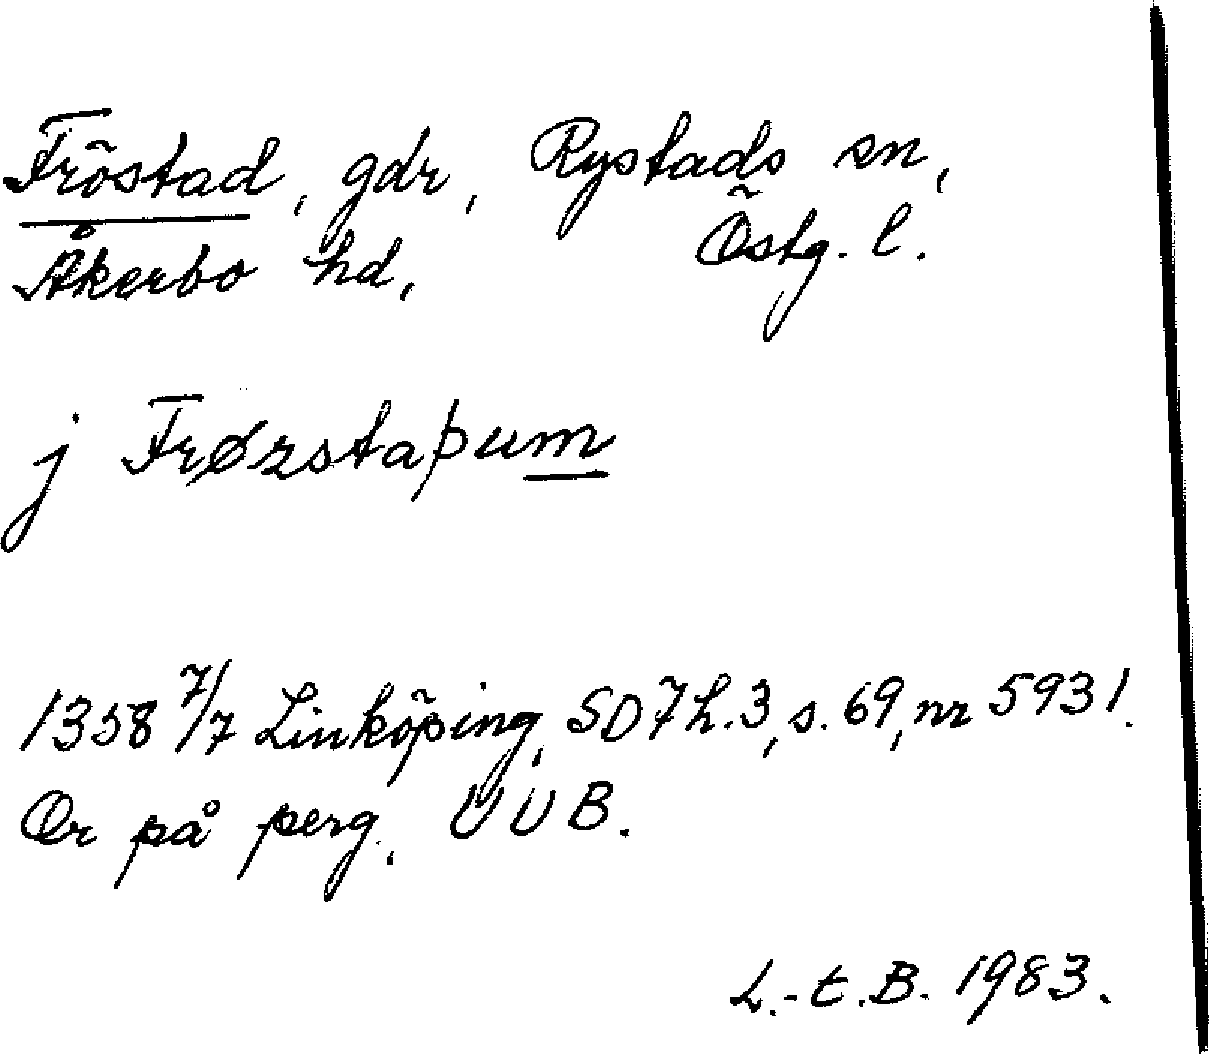 Fröstad, gdr, Rystads sn,
Åkerbo hd, Östg. l.
j Frøzstaþum
1358 7/7 Linköping, SD 7 h. 3, s. 69, nr 5931.
Or på perg., UUB.
L.-t.B. 1983.